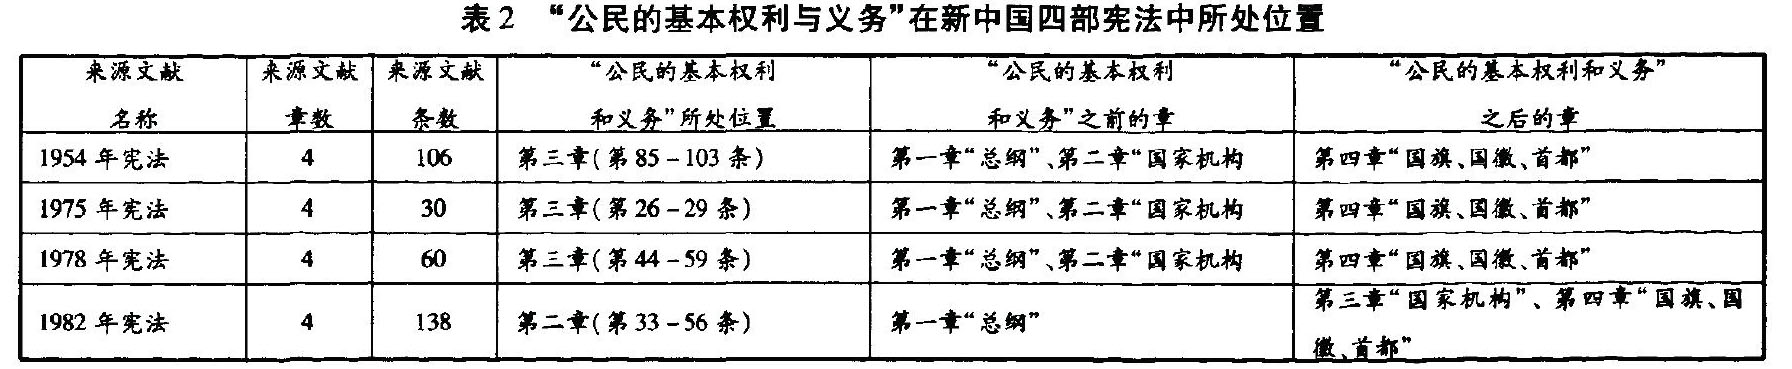 表2 “公民的基本权利与义务”在新中国四部宪法中所处位置
来源文献 来源文献 来源文献 “公民的基本权利 “公民的基本权利 “公民的基本权利和义务”
名称 章数 条数 和义务”所处位置 和义务”之前的章 之后的章
1954年宪法 4 106 第三章(第85-103条) 第一章“总纲”、第二章“国家机构 第四章“国旗、国徽、首都”
1975年宪法 4 30 第三章(第26-29条) 第一章“总纲”、第二章“国家机构 第四章“国旗、国徽、首都”
1978年宪法 4 60 第三章(第44-59条) 第一章“总纲”、第二章“国家机构 第四章“国旗、国徽、首都”
1982年宪法 4 138 第二章(第33-56条) 第一章“总纲” 第三章“国家机构”、第四章“国旗、国
徽、首都”